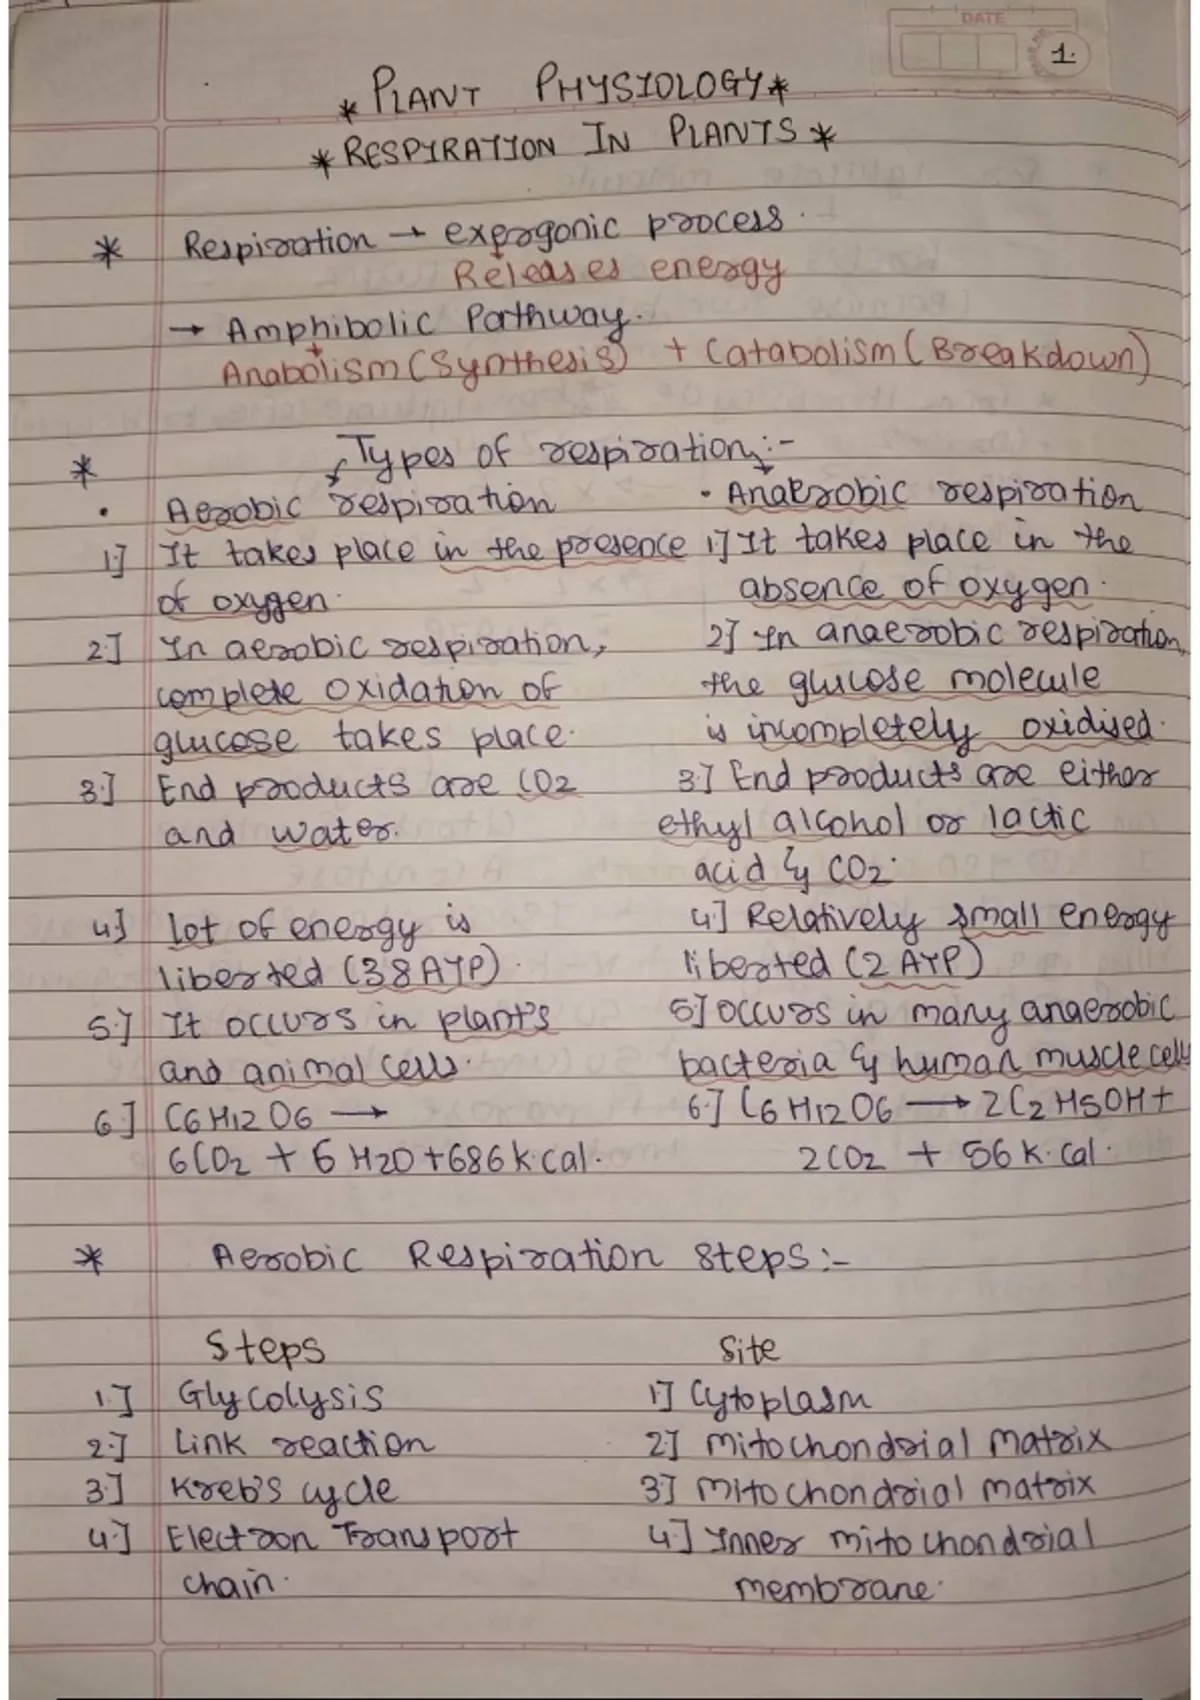 DATE
1.
* PLANT PHYSIOLOGY *
* RESPIRATION IN PLANTS *
* Respiration → exergonic process.
Releases energy
→ Amphibolic Pathway.
Anabolism (Synthesis) + Catabolism (Breakdown)
* Types of respiration:-
• Aerobic respiration
1.] It takes place in the presence
of oxygen.
2.] In aerobic respiration,
complete oxidation of
glucose takes place.
3.] End products are CO2
and water.
4.] Lot of energy is
liberted (38 ATP).
5.] It occurs in plant's
and animal cells.
6.] C6H12O6 →
6CO2 + 6H2O + 686 k.cal.
• Anaerobic respiration
1.] It takes place in the
absence of oxygen.
2] In anaerobic respiration,
the glucose molecule
is incompletely oxidised.
3.] End products are either
ethyl alcohol or lactic
acid & CO2.
4.] Relatively small energy
liberted (2 ATP)
5] Occurs in many anaerobic
bacteria & human muscle cells
6.] C6H12O6 → 2C2H5OH +
2CO2 + 56 k.cal.
* Aerobic Respiration steps:-
Steps
1.] Glycolysis
2.] Link reaction
3.] Kreb's cycle
4.] Electron Transport
chain.
Site
1] Cytoplasm
2] Mitochondrial matrix
3] Mitochondrial matrix
4.] Inner mitochondrial
membrane.